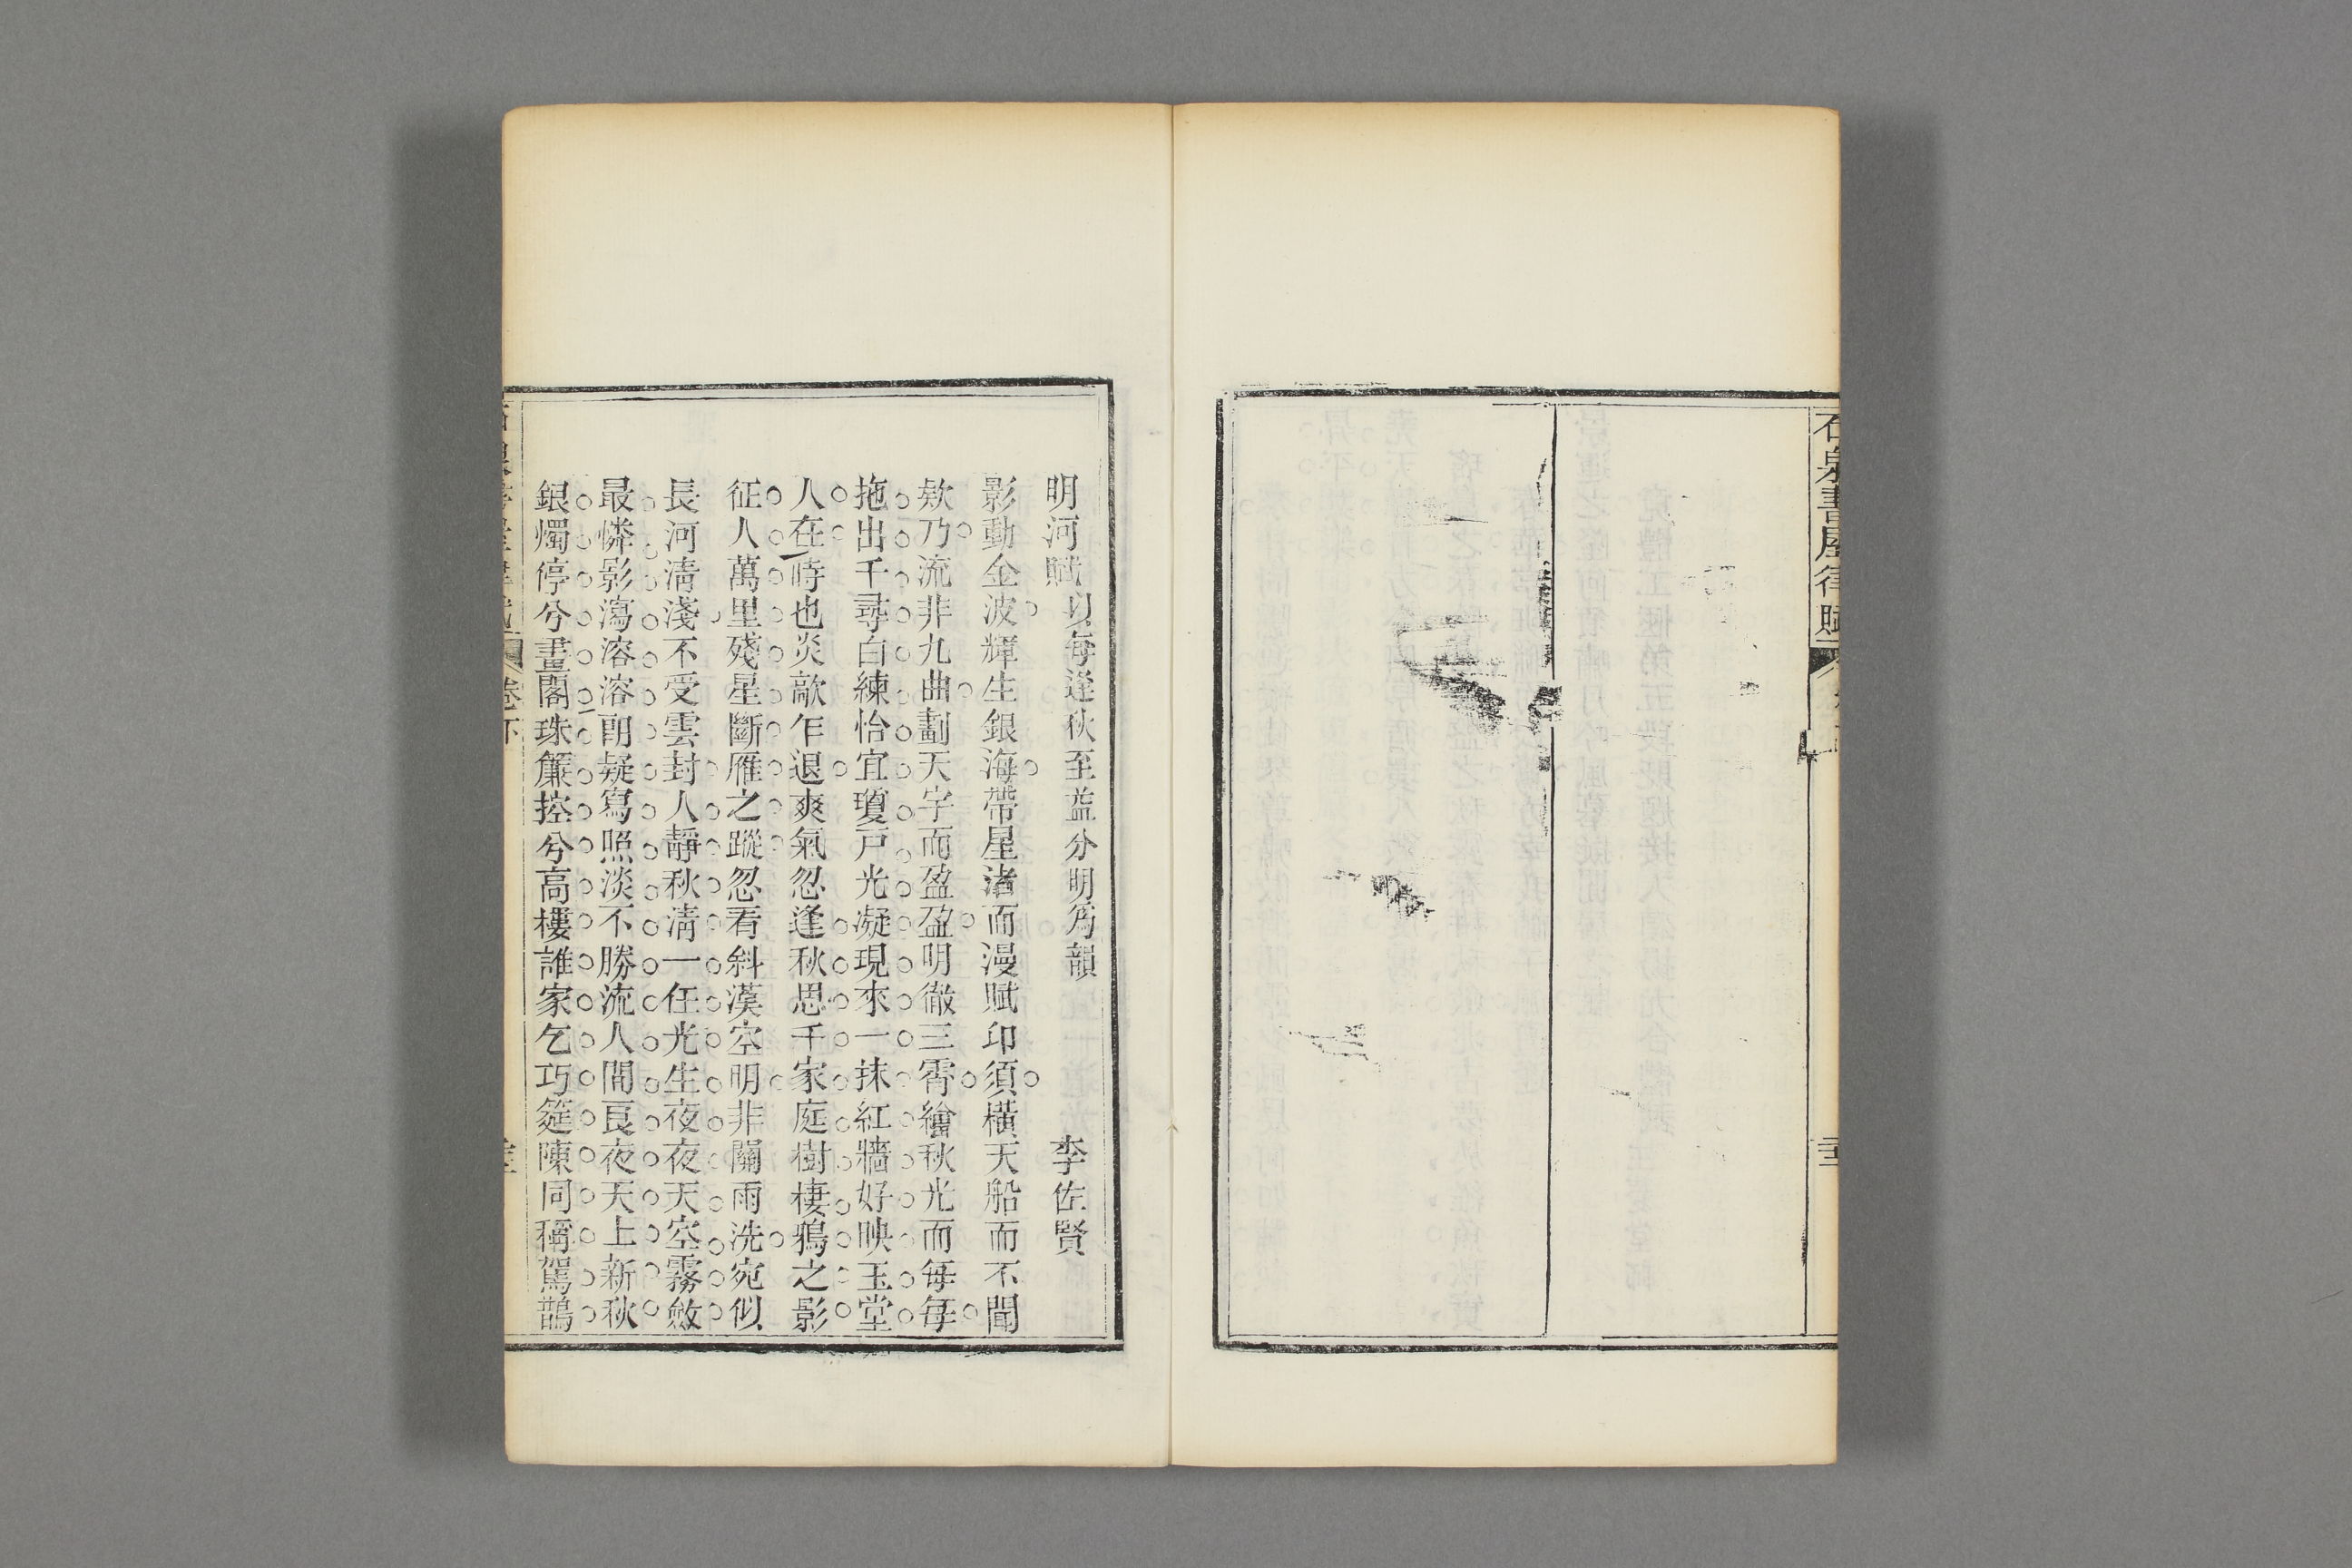 石泉書屋律賦
明河賦 以每逢秋至益分明爲韻 李佐賢
影動金波輝生銀海帶星渚而漫賦印須橫天船而不聞
欸乃流非九曲劃天宇而盈盈明徹三霄繪秋光而每每
拖出千尋白練怡宜瓊戸光凝現來一抹紅牆好映玉堂
人在時也炎歊乍退爽氣忽逢秋思千家庭樹棲鴉之影
征人萬里殘星斷雁之蹤忽看斜漢空明非關雨洗宛似
長河清淺不受雲封人靜秋清一任光生夜夜天空霧斂
最憐影瀉溶溶朗疑寫照淡不勝流人間良夜天上新秋
銀燭停兮畫閣珠簾控兮高樓誰家乞巧筵陳同稱駕鵲
卷下